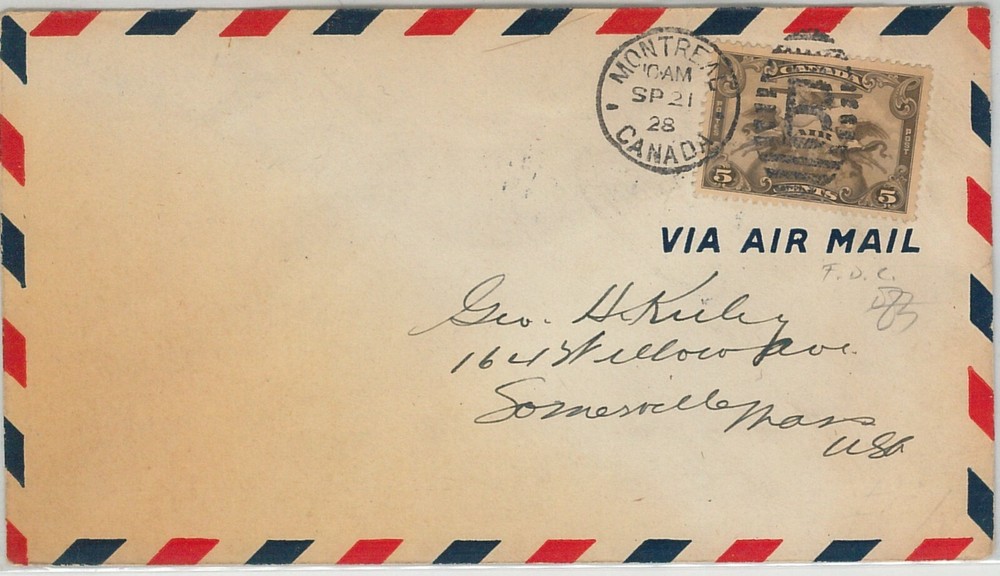 MONTREAL
10 AM
SP 21
28
CANADA
CANADA
POSTES
AIR
POST
5 CENTS 5
VIA AIR MAIL
F.D.C.
Geo. H. Kirby
164 Willow Ave.
Somerville Mass
USA